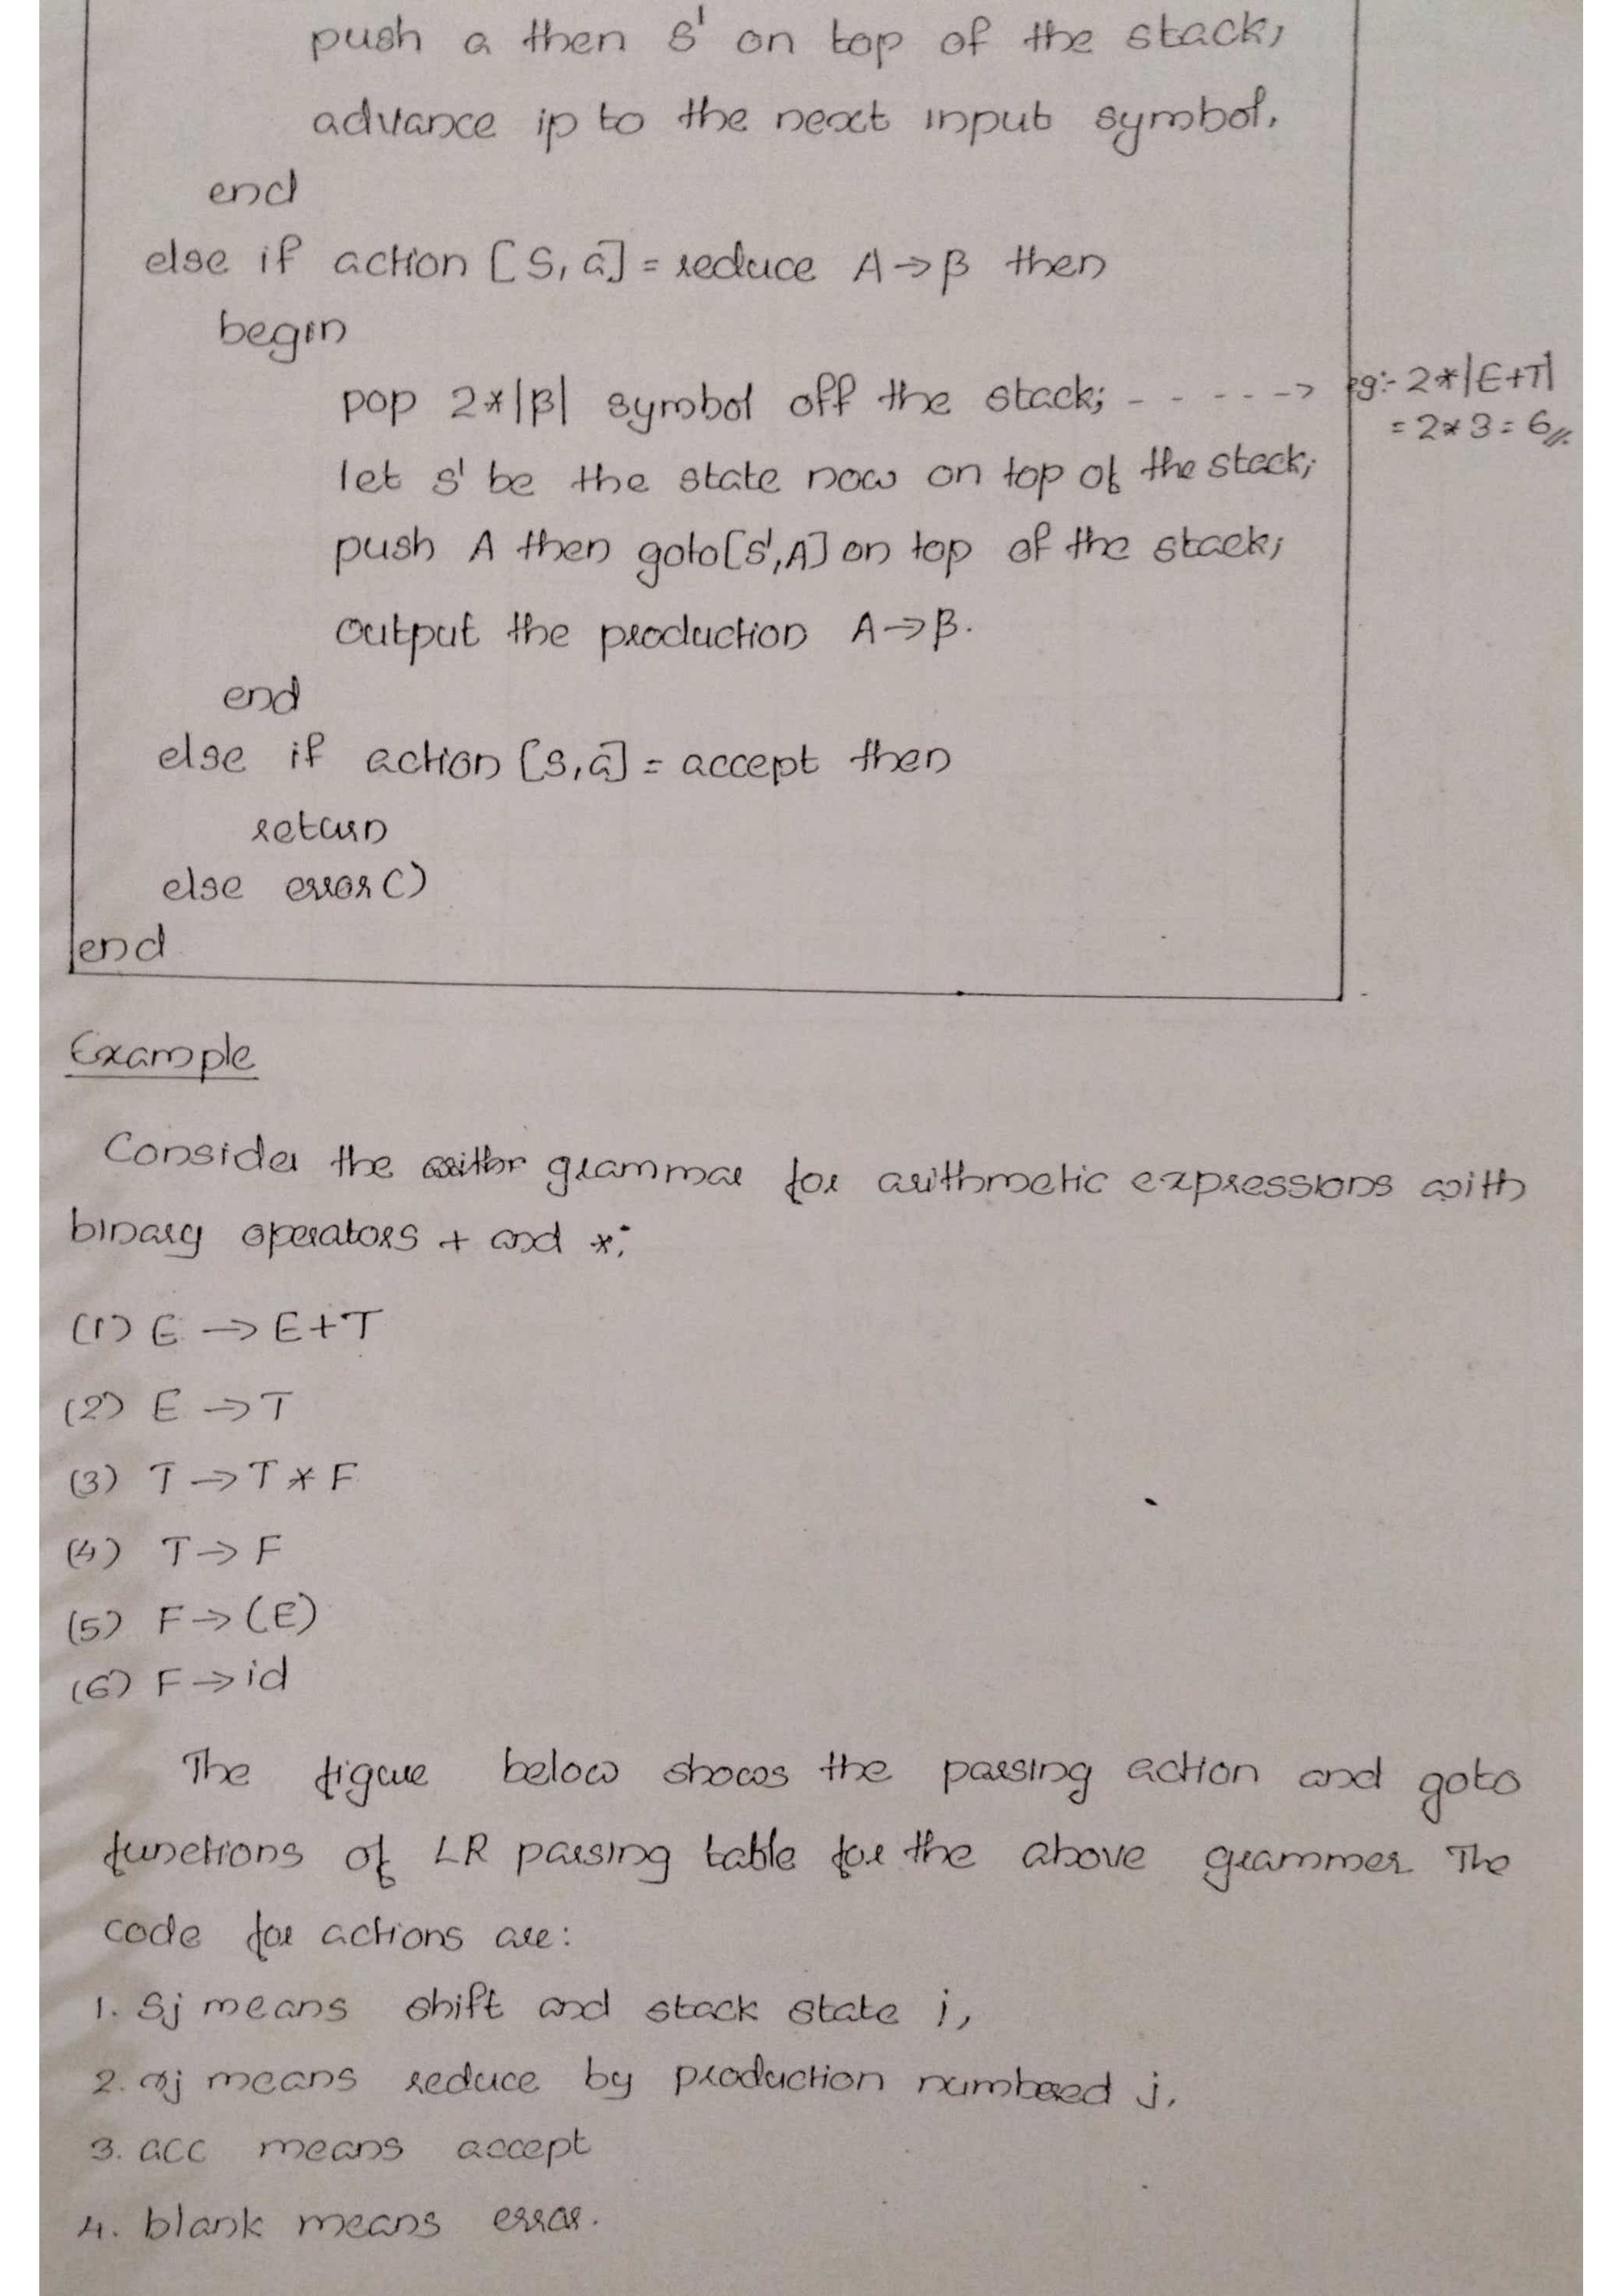 push a then s' on top of the stack;
advance ip to the next input symbol.
end
else if action [S, a] = reduce A→β then
begin
pop 2*|β| symbol off the stack; - - - - -> eg:- 2*|E+T|
= 2*3 = 6//.
let s' be the state now on top of the stack;
push A then goto[s',A] on top of the stack;
output the production A→β.
end
else if action [s,a] = accept then
return
else error()
end
Example
Consider the grammar for arithmetic expressions with
binary operators + and *:
(1) E → E+T
(2) E → T
(3) T → T * F
(4) T → F
(5) F → (E)
(6) F → id
The figure below shows the parsing action and goto
functions of LR parsing table for the above grammer. The
code for actions are:
1. Sj means shift and stack state j,
2. rj means reduce by production numbered j,
3. acc means accept
4. blank means error.